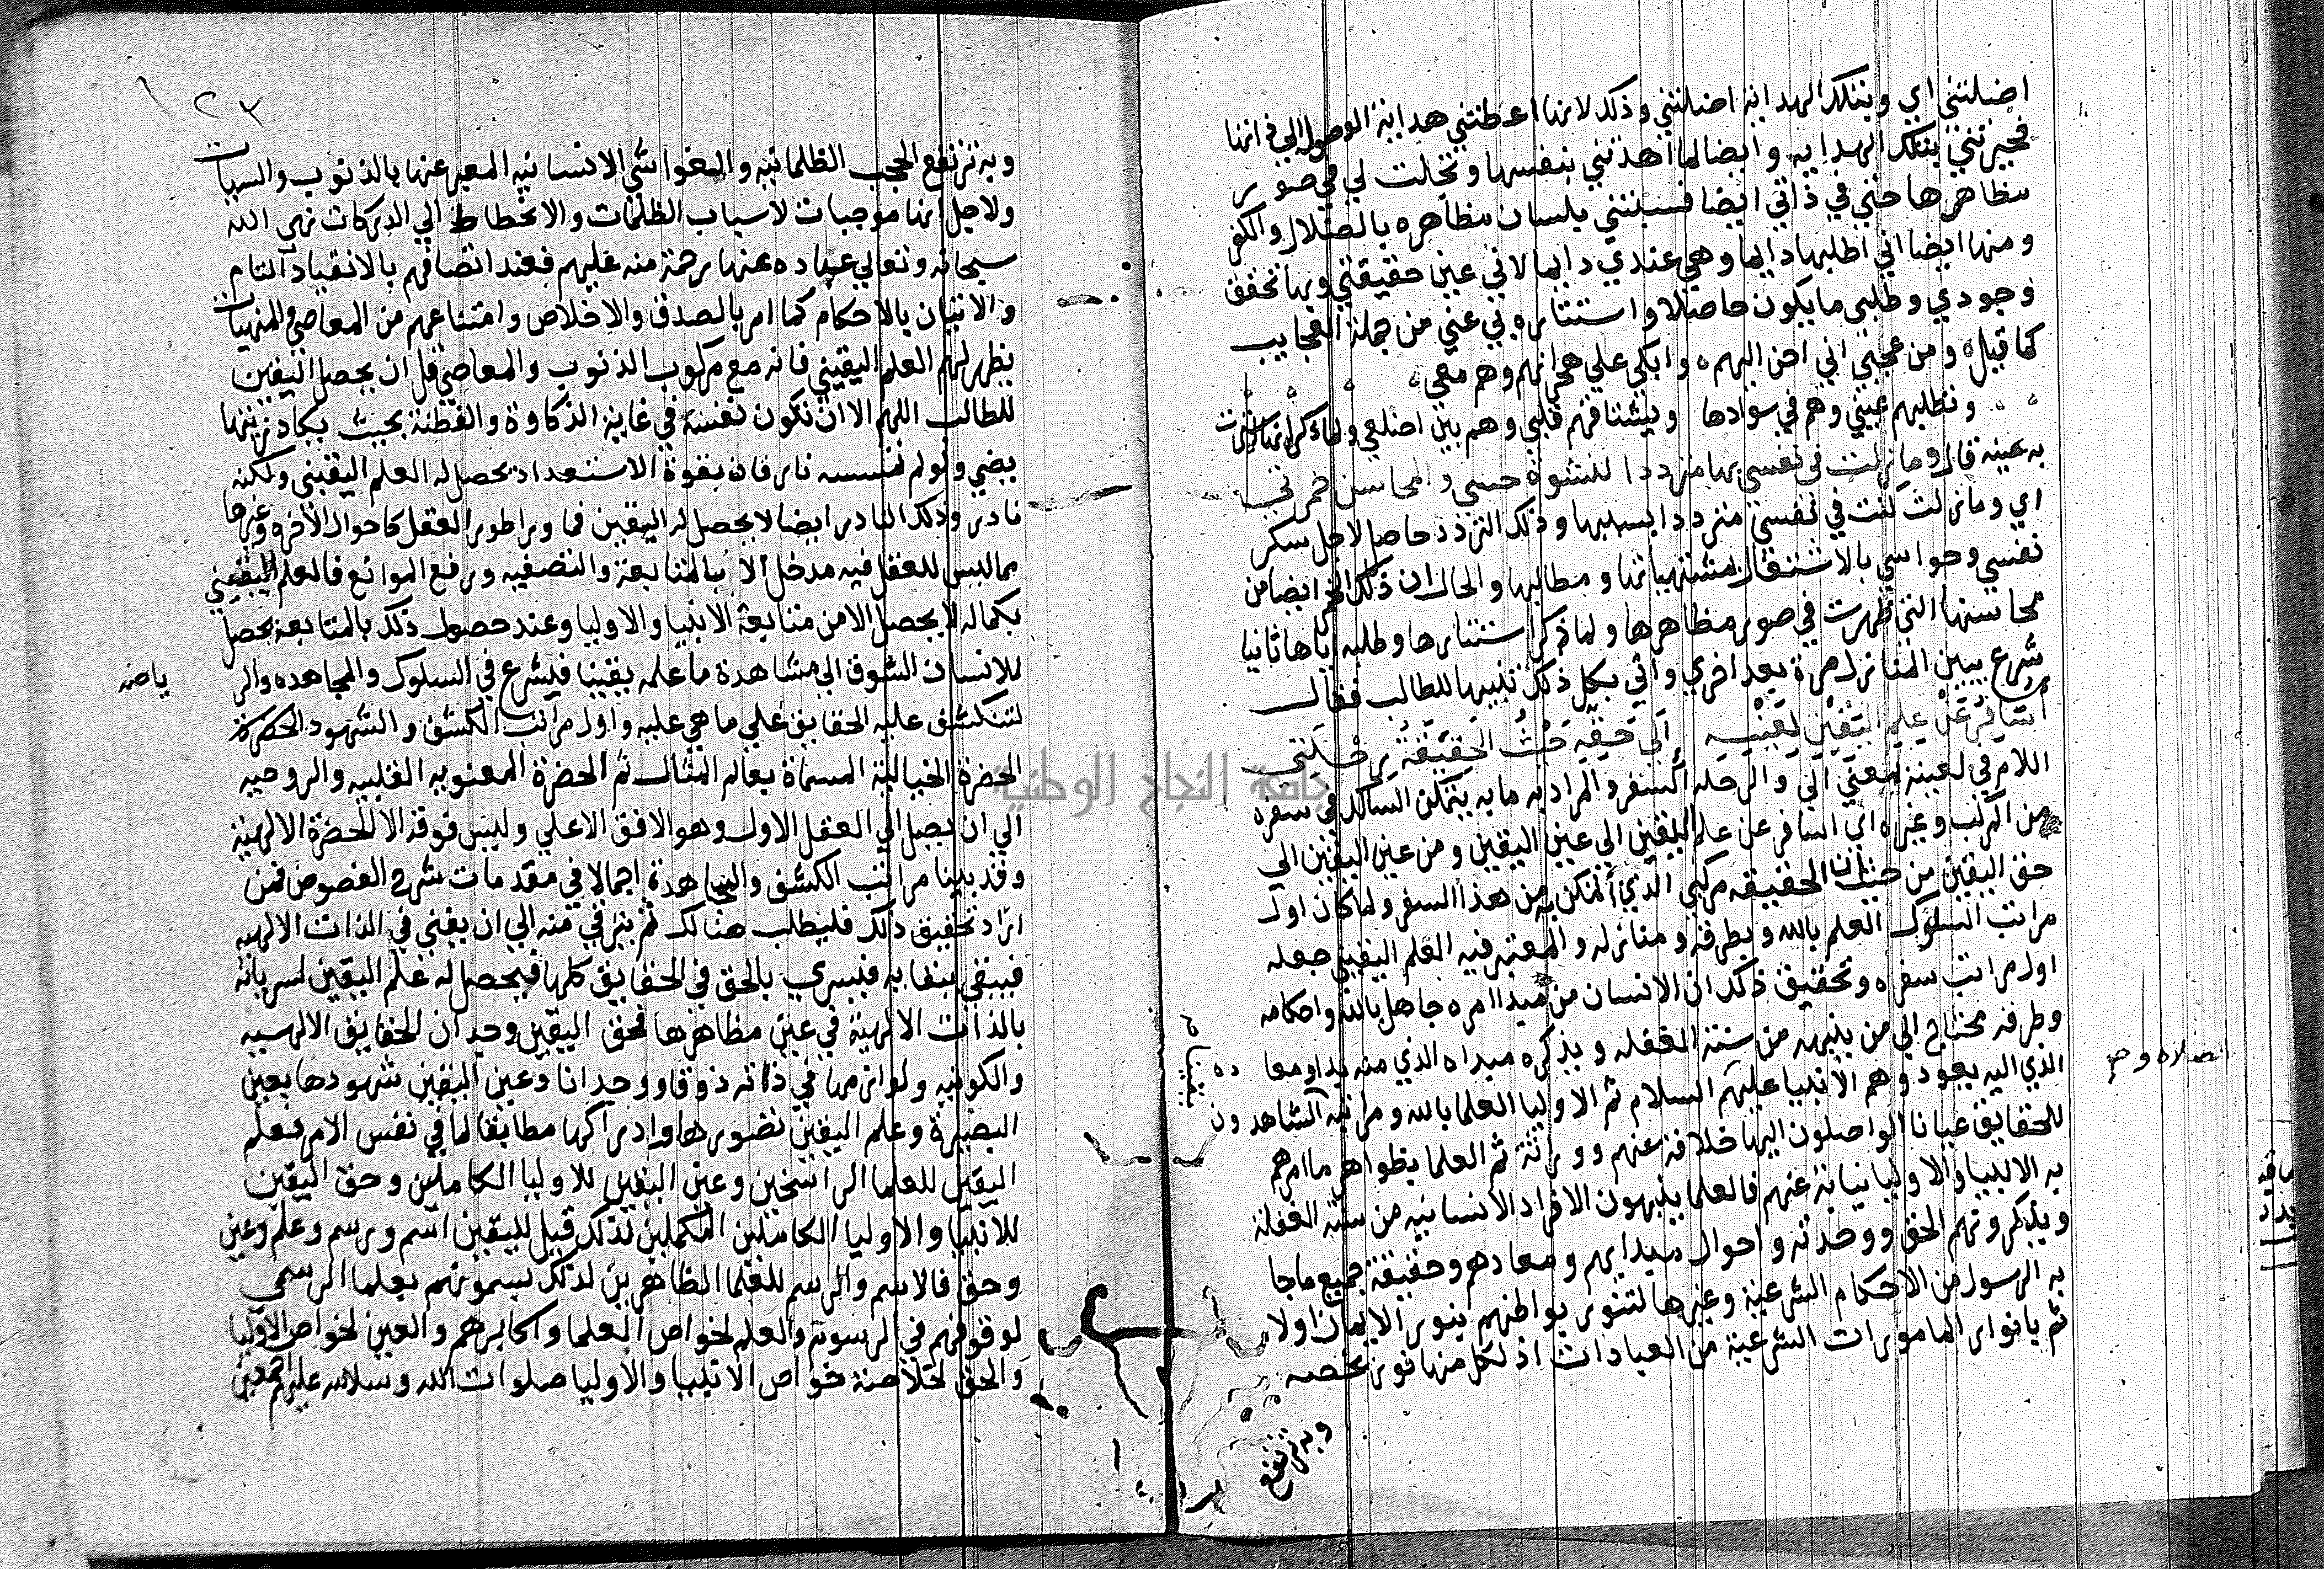 اضلتني اي وبتلك الهداية اضلتني وذلك لانها اعطتني هداية الوصول الي ذاتها
فحيرتني بتلك الهدايه وايضا لما هدتني بنفسها وتجلت لي في صور
مظاهرها حتي في ذاتي ايضا فسبتني بلسان مظاهره بالضلال والكفر
ومنها ايضا اني اطلبها دايما وهي عندي دايما لاني عين حقيقتي وبها تحقق
وجودي وطلبي ما يكون حاصلا واستتاره بي عني من جملة العجايب
كما قيل ه ومن عجبي اني احن اليهم ه وابكي علي هجرانهم وهم معي
وتطلبهم عيني وهم في سوادها ويشتاقهم قلبي وهم بين اضلعي ولما ذكر
به عينه قال وما زلت في نفسي بها مترددا لنشوة حسي والمحاسن خمرتي
اي وما زلت كنت في نفسي مترددا بسببها وذلك التردد حاصل لاجل سكر
نفسي وحواسي بالاشتغال مشتهياتها ومطالبها والحال ان ذلك الخمر ايضا من
محاسنها التي ظهرت في صور مظاهرها ولما ذكر استتارها وطلبه اياها ثانيا
شرع يبين المنازل مرة بعد اخري واتي بكل ذلك تنبيها للطالب فقال
اسافر عن علم اليقين لعينه الي حقه حيث الحقيقة رحلتي
اللام في لعينه بمعني الي والرحله السفر والمراد به ما به يتمكن السالك في سفره
من المركب وغيره اي اسافر عن علم اليقين الي عين اليقين ومن عين اليقين الي
حق اليقين من حيث ان الحقيقه مركبي الذي اتمكن به من هذا السفر ولما كان اول
مراتب السلوك العلم بالله وبطرقه ومنازله والمعتبر فيه العلم اليقيني جعله
اول مراتب سفره وتحقيق ذلك ان الانسان من مبدا امره جاهل بالله واحكامه
وطرقه محتاج الي من ينبهه من سنة الغفله ويذكره مبداه الذي منه بدا ومعاده
الذي اليه يعود وهم الانبيا عليهم السلام ثم الاوليا العلما بالله ومراتبه المشاهدون
للحقايق عيانا الواصلون اليها خلافة عنهم ووراثة ثم العلما بظواهر ما امرهم
به الانبيا والاوليا نيابة عنهم فالعلما ينبهون الافراد الانسانيه من سنة الغفلة
ويذكرونهم الحق ووحدته واحوال مبدايهم ومعادهم وحقيقة جميع ما جا
به الرسول من الاحكام الشرعية وغيرها لتتنور بواطنهم بنور الايمان اولا
ثم بانوار المامورات الشرعية من العبادات اذ لكل منها نور يخصه
وبه ترتفع
١٢٣
وبه ترتفع الحجب الظلمانيه والغواشي الانسانيه المعبر عنها بالذنوب والسيات
ولاجل انها موجبات لاسباب الظلمات والانحطاط الي الدركات نهي الله
سبحانه وتعالي عباده عنها رحمة منه عليهم فعند اتصافهم بالانقياد التام
والاتيان بالاحكام كما امر بالصدق والاخلاص وامتناعهم من المعاصي والمنهيات
يظهر لهم العلم اليقيني فانه مع ركوب الذنوب والمعاصي قل ان يحصل اليقين
للطالب اللهم الا ان تكون نفسه في غاية الذكاوة والفطنة بحيث يكاد زيتها
يضي ولو لم تمسسه نار فان بقوة الاستعداد تحصل له العلم اليقيني ولكنه
نادر وذلك النادر ايضا لا يحصل له اليقين فما ورا طور العقل كاحوال الاخره وغيرها
مما ليس للعقل فيه مدخل الا بالمتابعة والتصفيه ورفع الموانع فالعلم اليقيني
بكماله لا يحصل الا من متابعة الانبيا والاوليا وعند حصول ذلك بالمتابعة يحصل
للانسان الشوق الي مشاهدة ما علمه يقينا فيشرع في السلوك والمجاهده والرياضه
لتنكشف عليه الحقايق علي ما هي عليه واول مراتب الكشف والشهود الحضرة
الحضرة الخيالية المسماة بعالم المثال ثم الحضرة المعنويه القلبيه والروحيه
الي ان يصل الي العقل الاول وهو الافق الاعلي وليس فوقه الا الحضرة الالهية
وقد بينا مراتب الكشف والمشاهدة اجمالا في مقدمات شرح الفصوص فمن
اراد تحقيق ذلك فليطلب هنالك ثم يترقي منه الي ان يفني في الذات الالهيه
فيبقي ببقايه فيسري بالحق في الحقايق كلها فيحصل له علم اليقين لسريانه
بالذات الالهية في عين مظاهرها فحق اليقين وجدان الحقايق الالهيه
والكونيه ولوازمها في ذاته ذوقا ووجدانا وعين اليقين شهودها بعين
البصيرة وعلم اليقين تصورها وادراكها مطابقا لما في نفس الامر فعلم
اليقين للعلما الراسخين وعين اليقين للاوليا الكاملين وحق اليقين
للانبيا والاوليا الكاملين المكملين لذلك قيل لليقين اسم ورسم وعلم وعين
وحق فالاسم والرسم للعلما الظاهرين لذلك يسمونهم بعلما الرسمي
لوقوفهم في الرسوم والعلم لخواص العلما واكابرهم والعين لخواص الاوليا
والحق لخلاصة خواص الانبيا والاوليا صلوات الله وسلامه عليهم اجمعين
جامعة النجاح الوطنية